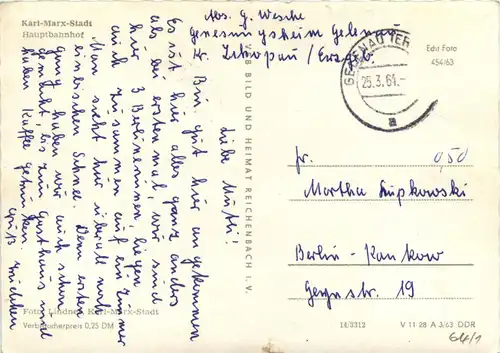 Karl-Marx-Stadt
Hauptbahnhof
Abs. G. Wesche
Genesungsheim Gelenau
Kr. Zschopau / Erzgeb.
GELENAU (ERZ
25.3.64.-
a
Edu Foto
454/63
Liebe Mutti!
Bin gut hier angekommen
Es ist hier alles ganz anders
als das erste mal, wir sind
hier 3 Berlinerinnen, liegen
auch zusammen auf ein Zimmer
Man sieht hier überall noch
ein bischen Schnee. Den ersten
gung haben wir auch schon
gemacht, bis zum Gasthaus und
haben Kaffee getrunken.
Gruß
VEB BILD UND HEIMAT REICHENBACH I. V.
Fr.
0,50
Martha Lupkowski
Berlin-Pankow
str. 19
Foto: Lindner, Karl-Marx-Stadt
Verbraucherpreis 0,25 DM
14/3312
V 11 28 A 3/63 DDR
64/1